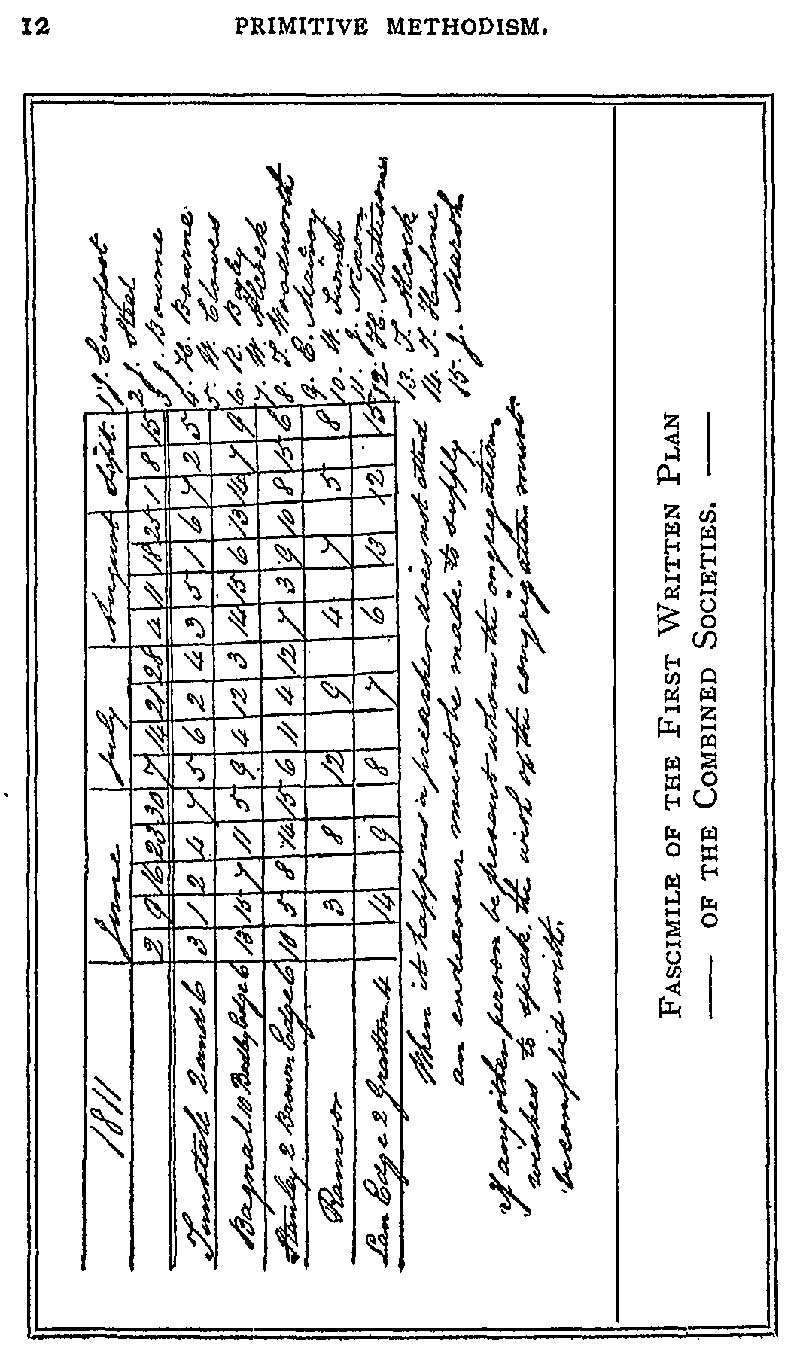 12 PRIMITIVE METHODISM.
1811 June July August Sept. 1 J. Crawfoot
2 9 16 23 30 7 14 21 28 4 11 18 25 1 8 15 2 J. Steel
3 J. Bourne
Tunstall 2 and 6 3 1 2 4 7 5 6 2 4 3 5 1 6 7 2 5 4. H. Bourne
5. W. Clowes
Bagnal 10 Badly Edge 6 13 15 7 11 5 9 4 12 3 14 15 6 13 14 7 9 6. R. Bayley
7. W. Alcock
Stanley 2 Brown Edge 6 10 5 8 14 15 6 11 4 12 7 3 9 10 8 15 6 8. T. Woodnorth
9. E.
Ramsor 3 8 12 9 4 7 5 8 10. W. Turner
11. J. Nixon
Lan Edge 2 Gratton 4 14 9 8 7 6 13 12 15 12. H. Mattinson
13. T. Alcock
14. T. Hulme
15. J. Marsh
When it happens a preacher does not attend
an endeavour must be made, to supply
If any other person be present whom the congregation
wishes to speak, the wish of the congregation must
be complied with.
FASCIMILE OF THE FIRST WRITTEN PLAN
OF THE COMBINED SOCIETIES.